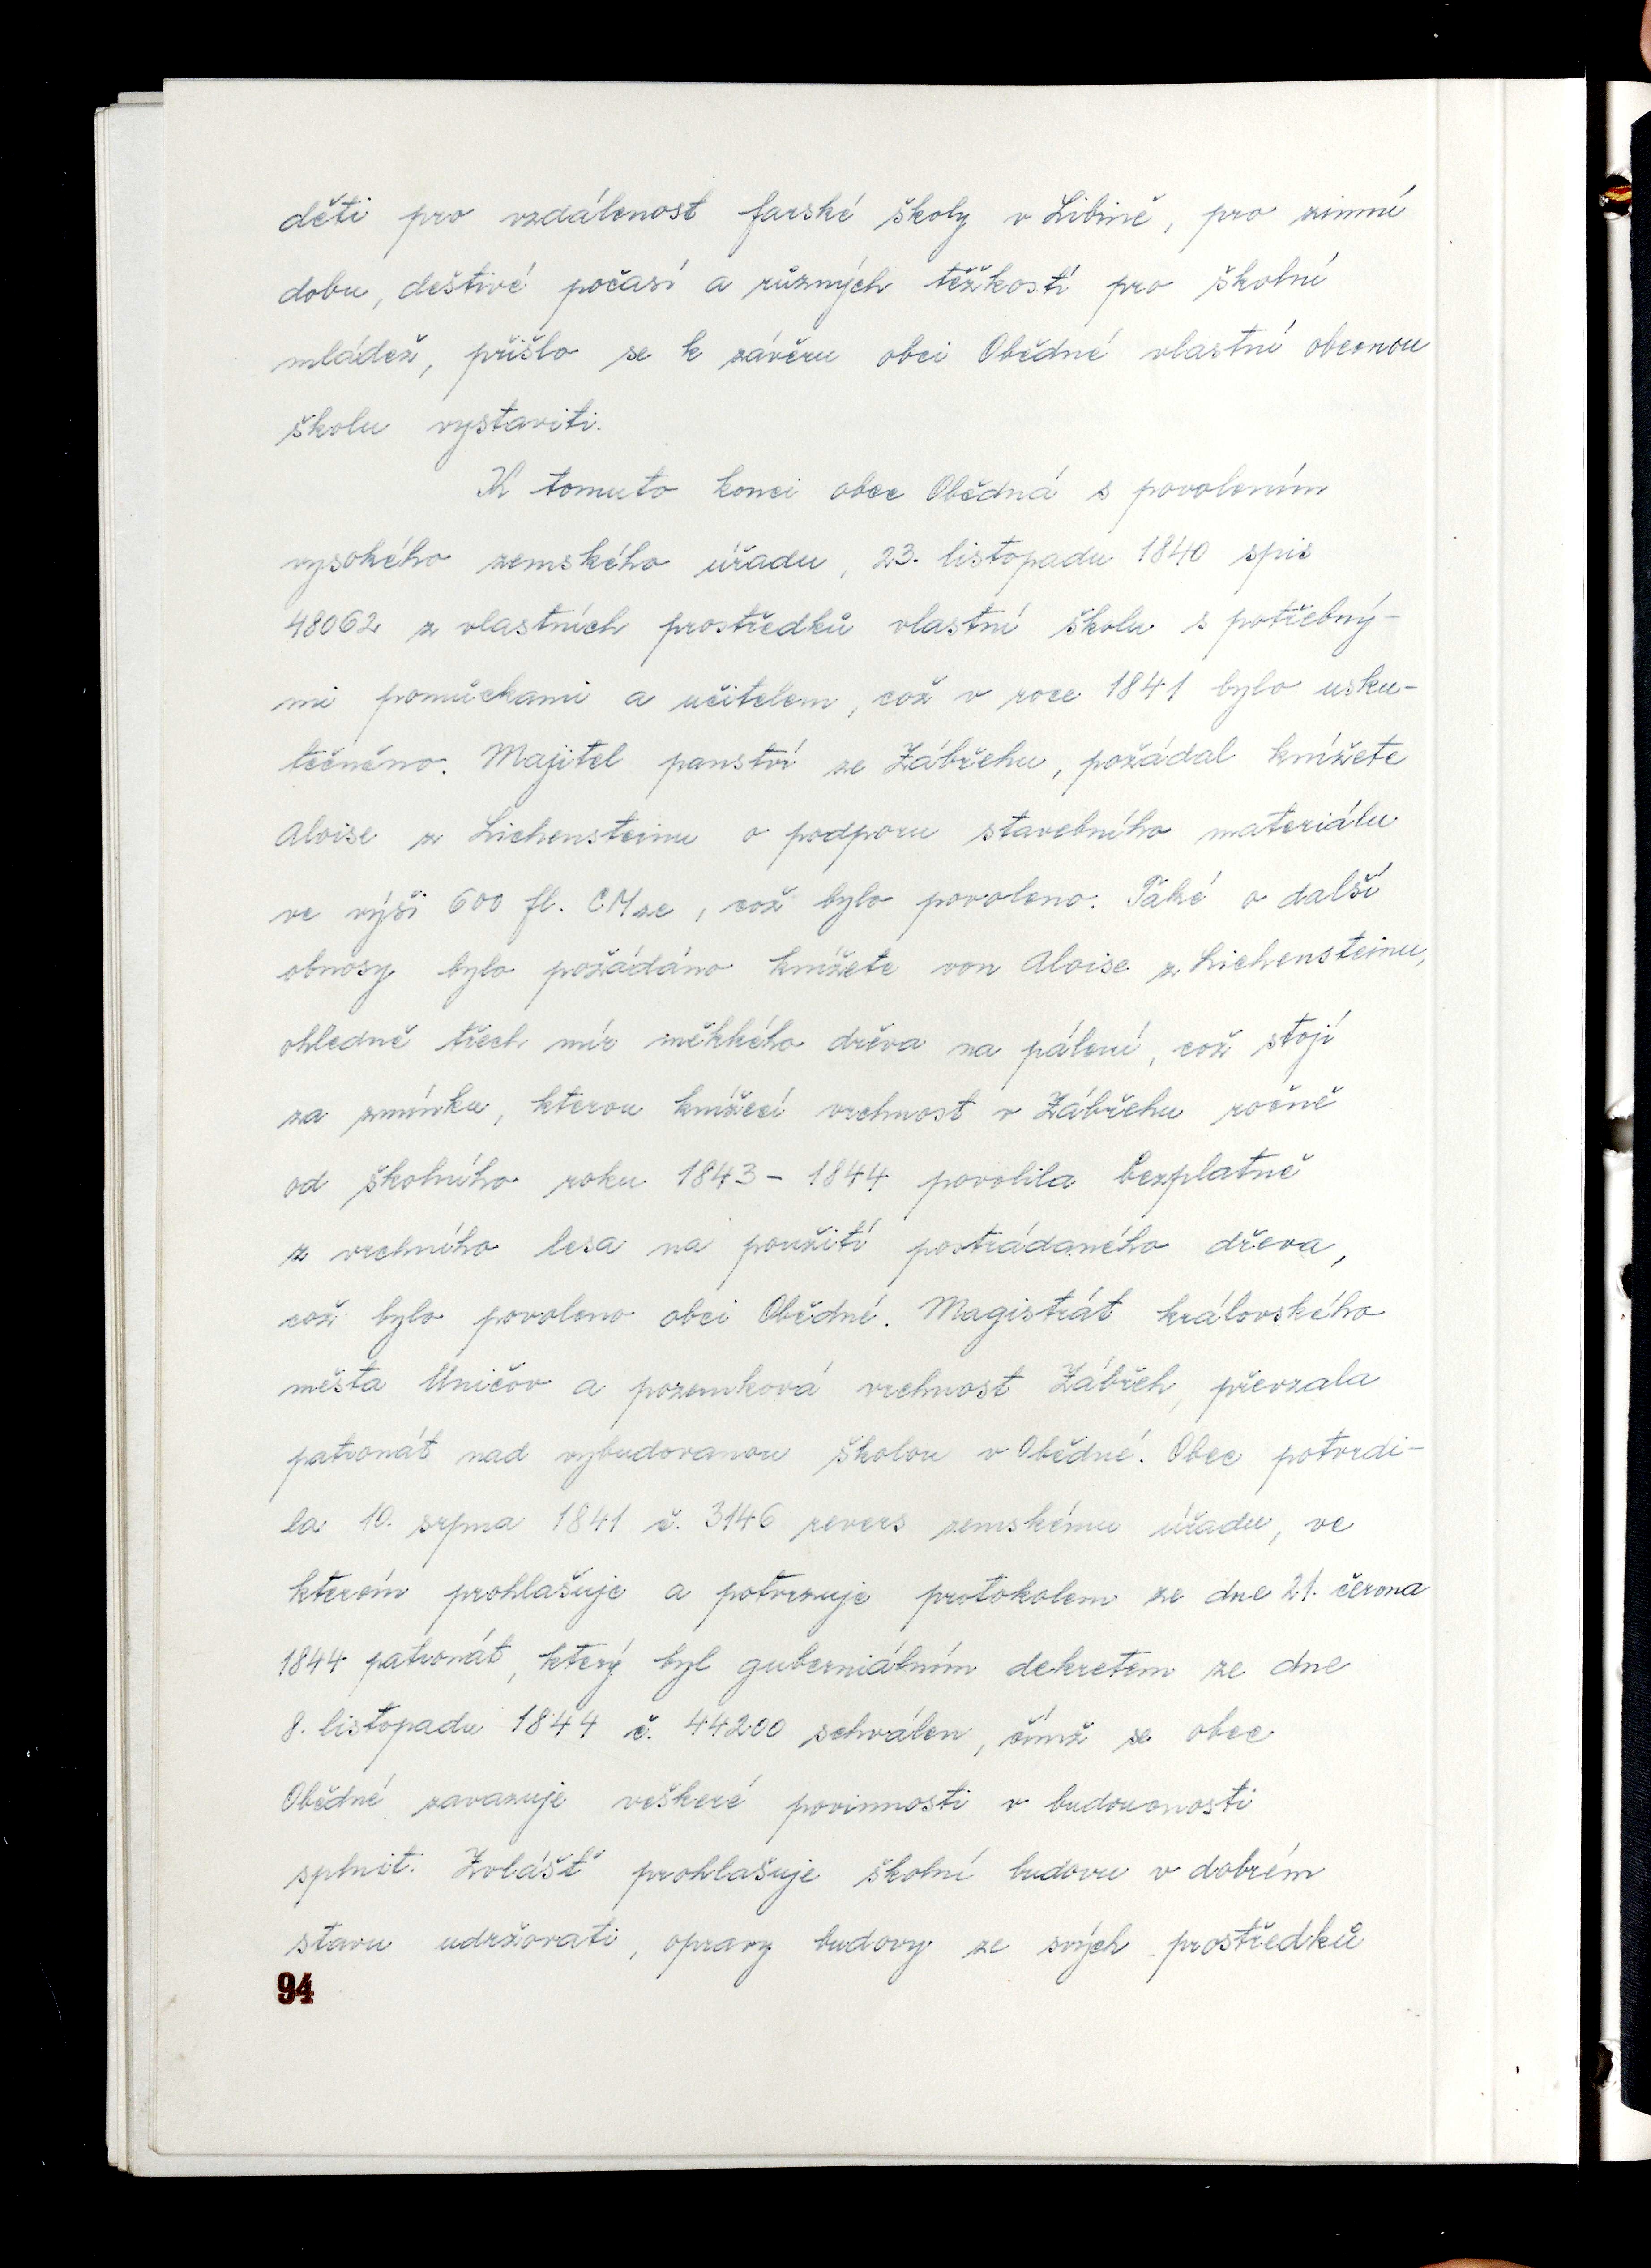 děti pro vzdálenost farské školy v Libině, pro zimní
dobu, deštivé počasí a různých těžkostí pro školní
mládež, přišlo se k závěru obci Obědné vlastní obecnou
školu vystaviti.
K tomuto konci obec Obědná s povolením
vysokého zemského úřadu, 23. listopadu 1840 spis
48062 z vlastních prostředků vlastní školu s potřebný-
mi pomůckami a učitelem, což v roce 1841 bylo usku-
tečněno. Majitel panství ze Zábřehu, požádal knížete
Aloise z Lichensteinu o podporu stavebního materiálu
ve výši 600 fl. CMze, což bylo povoleno. Také o další
obnosy bylo požádáno knížete von Aloise z Lichensteinu,
ohledně třech mír měkkého dřeva na pálení, což stojí
za zmínku, kterou knížecí vrchnost v Zábřehu ročně
od školního roku 1843 - 1844 povolila bezplatně
z vrchního lesa na použití postrádaného dřeva,
což bylo povoleno obci Obědné. Magistrát královského
města Uničov a pozemková vrchnost Zábřeh, převzala
patronát nad vybudovanou školou v Obědné. Obec potvrdi-
la 10. srpna 1841 č. 3146 revers zemskému úřadu, ve
kterém prohlašuje a potvrzuje protokolem ze dne 21. června
1844 patronát, který byl guberniálním dekretem ze dne
8. listopadu 1844 č. 44200 schválen, čímž se obec
Obědné zavazuje veškeré povinnosti v budoucnosti
splnit. Zvlášť prohlašuje školní budovu v dobrém
stavu udržovati, opravy budovy ze svých prostředků
94